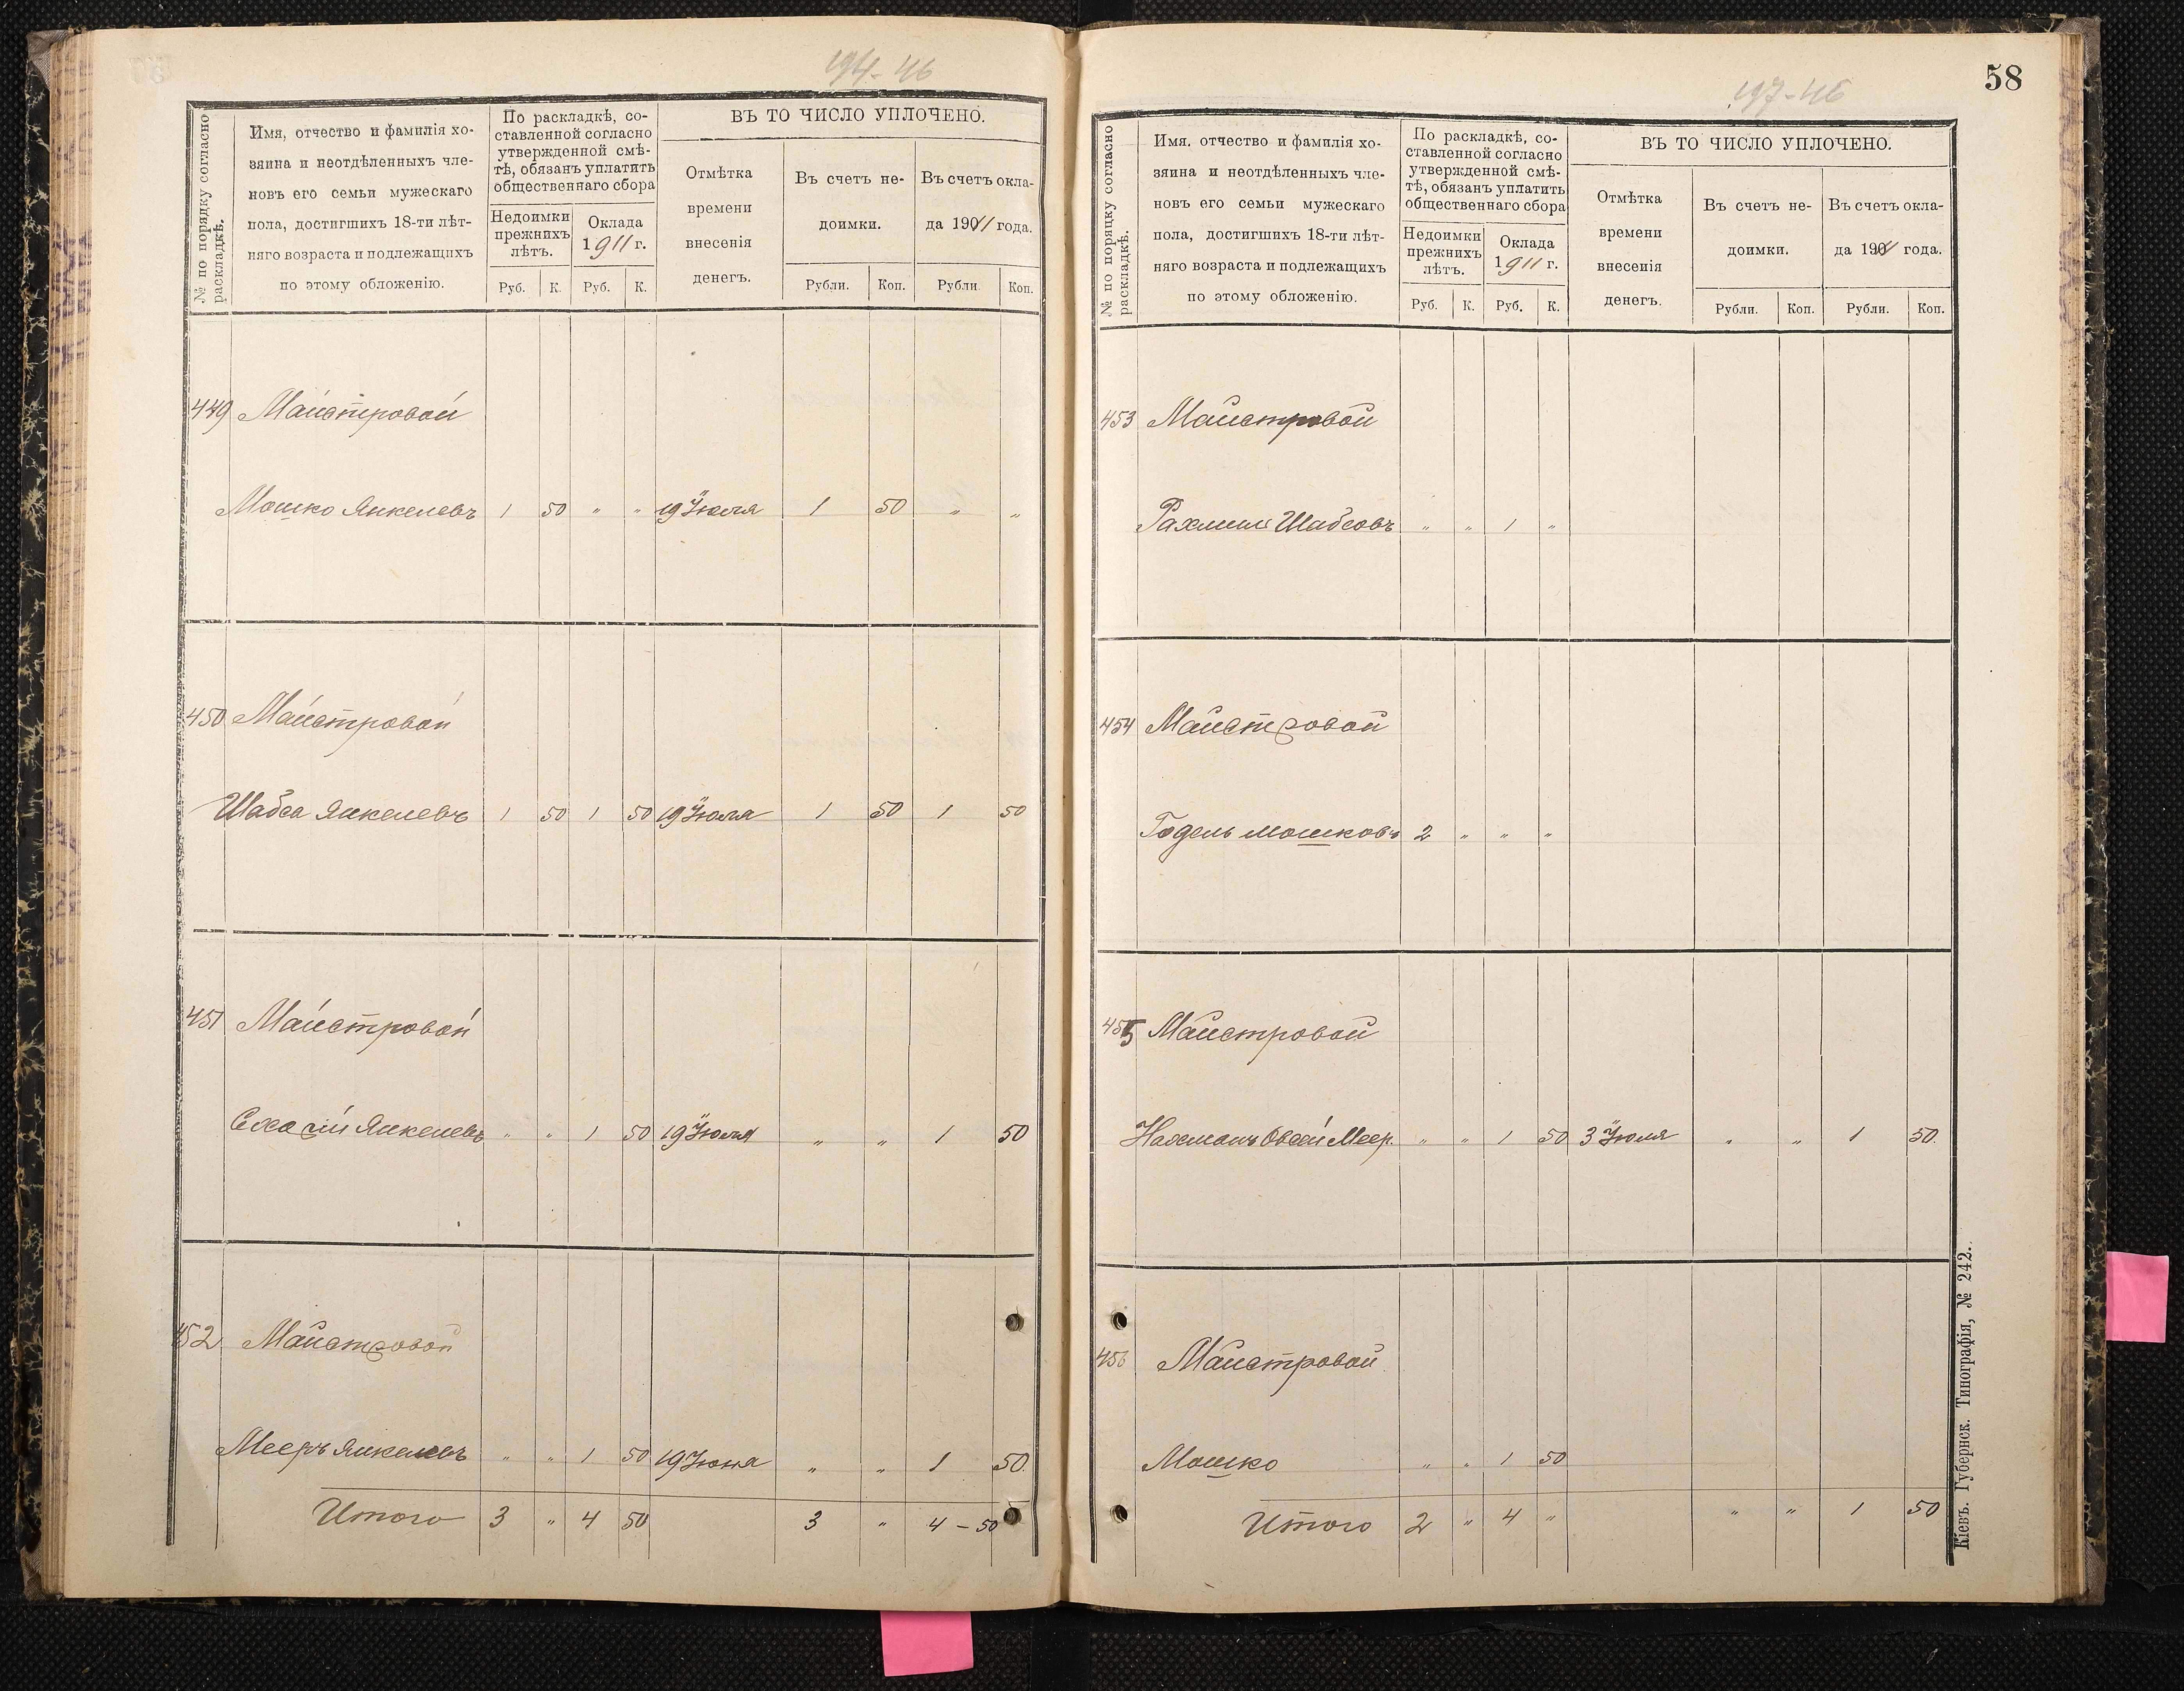 194-46
№ по порядку согласно раскладкѣ.
Имя, отчество и фамилія хо-
зяина и неотдѣленныхъ чле-
новъ его семьи мужескаго
пола, достигшихъ 18-ти лѣт-
няго возраста и подлежащихъ
по этому обложенію.
По раскладкѣ, со-
ставленной согласно
утвержденной смѣ-
тѣ, обязанъ уплатить
общественнаго сбора
Недоимки
прежнихъ
лѣтъ.
Оклада
1911 г.
Руб. К. Руб. К.
ВЪ ТО ЧИСЛО УПЛОЧЕНО.
Отмѣтка
времени
внесенія
денегъ.
Въ счетъ не-
доимки.
Въ счетъ окла-
да 1911 года.
Рубли. Коп. Рубли. Коп.
449 Майстровой
Мошко Янкелевъ 1 50 " " 19 Іюля 1 50 " "
450 Майстровой
Шабса Янкелевъ 1 50 1 50 19 Іюля 1 50 1 50
451 Майстровой
Янкелевъ " " 1 50 19 Іюля " " 1 50
452 Майстровой
Мееръ Янкелевъ " " 1 50 19 Іюня " " 1 50
Итого 3 " 4 50 3 " 4 - 50
197-46
58
№ по порядку согласно раскладкѣ.
Имя, отчество и фамилія хо-
зяина и неотдѣленныхъ чле-
новъ его семьи мужескаго
пола, достигшихъ 18-ти лѣт-
няго возраста и подлежащихъ
по этому обложенію.
По раскладкѣ, со-
ставленной согласно
утвержденной смѣ-
тѣ, обязанъ уплатить
общественнаго сбора
Недоимки
прежнихъ
лѣтъ.
Оклада
1911 г.
Руб. К. Руб. К.
ВЪ ТО ЧИСЛО УПЛОЧЕНО.
Отмѣтка
времени
внесенія
денегъ.
Въ счетъ не-
доимки.
Въ счетъ окла-
да 1911 года.
Рубли. Коп. Рубли. Коп.
453 Майстровой
Рахмиль Шабсовъ " " 1 "
454 Майстровой
Годель Мошковъ 2 " " "
455 Майстровой
Нахманъ Овсей Меер. " " 1 50 3 Іюля " " 1 50.
456 Майстровой
Мошко " " 1 50
Итого 2 " 4 " " " 1 50
Кіевъ. Губернск. Типографія, № 242.